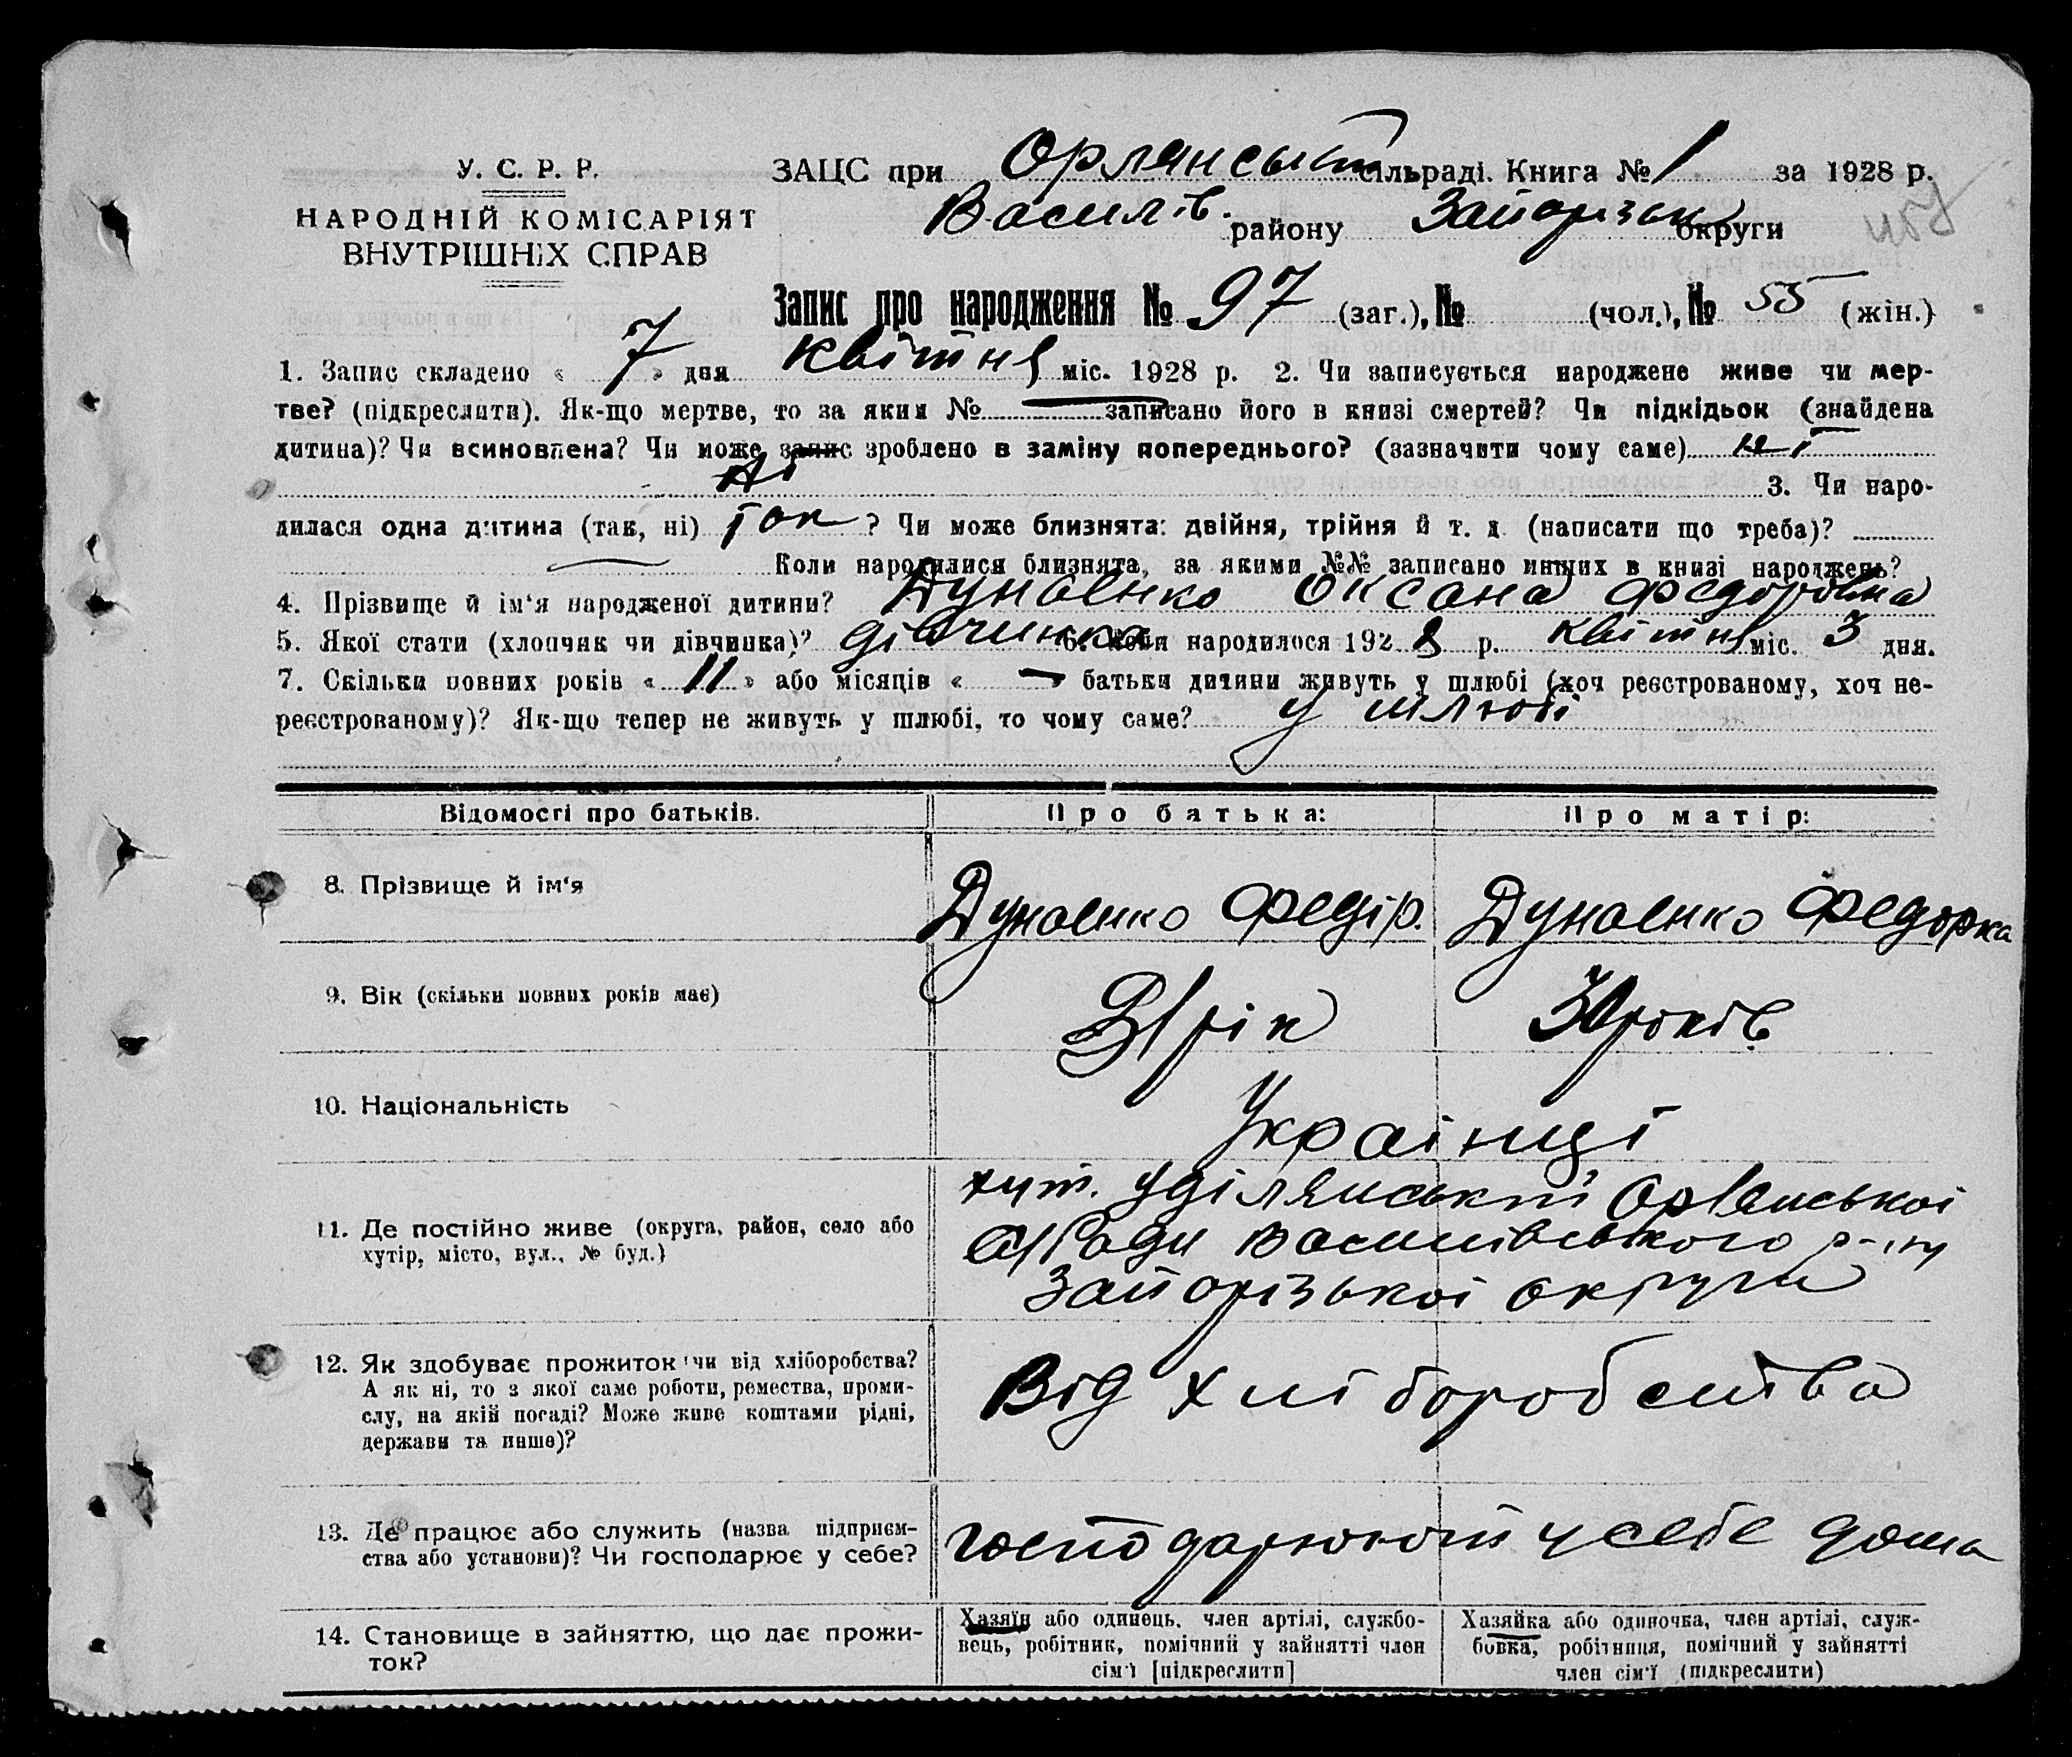 У. С. Р. Р.
НАРОДНІЙ КОМІСАРІЯТ
ВНУТРІШНІХ СПРАВ
ЗАЦС при Орлянській сільраді. Книга № 1 за 1928 р.
Василів. району Запорізьк округи
Запис про народження № 97 (заг.), № (чол.), № 55 (жін.)
1. Запис складено « 7 » дня квітня міс. 1928 р. 2. Чи записується народжене живе чи мер-
тве? (підкреслити). Як-що мертве, то за яким № — записано його в книзі смертей? Чи підкідьок (знайдена
дитина)? Чи всиновлена? Чи може запис зроблено в заміну попереднього? (зазначити чому саме) ні
ні 3. Чи наро-
дилася одна дитина (так, ні) так ? Чи може близнята: двійня, трійня й т. д. (написати що треба)?
— Коли народилися близнята, за якими №№ записано инших в книзі народжень?
4. Прізвище й ім‘я народженої дитини? Дунаенко Оксана Федоровна
5. Якої стати (хлопчик чи дівчинка)? дівчинка 6. Коли народилося 1928 р. квітня міс. 3 дня.
7. Скільки повних років « 11 » або місяців « — » батьки дитини живуть у шлюбі (хоч реєстрованому, хоч не-
реєстрованому)? Як-що тепер не живуть у шлюбі, то чому саме? у шлюбі
Відомості про батьків. Про батька: Про матір:
8. Прізвище й ім‘я Дунаенко Федір. Дунаенко Федорка
9. Вік (скільки повних років має) 31 рік 30 років
10. Національність Украінці
11. Де постійно живе (округа, район, село або
хутір, місто, вул., № буд.)
хут. Уділянський Орлянськоі
с/Ради Василівського р-ну
Запорізькоі округи
12. Як здобуває прожиток чи від хліборобства?
А як ні, то з якої саме роботи, ремества, проми-
слу, на якій посаді? Може живе коштами рідні,
держави та инше)?
Від хліборобства
13. Де працює або служить (назва підприєм-
ства або установи)? Чи господарює у себе?
господарюють у себе дома
14. Становище в зайняттю, що дає прожи-
ток?
Хазяїн або одинець, член артілі, службо-
вець, робітник, помічний у зайнятті член
сім‘ї [підкреслити]
Хазяйка або одиночка, член артілі, служ-
бовка, робітниця, помічний у зайнятті
член сім‘ї (підкреслити)